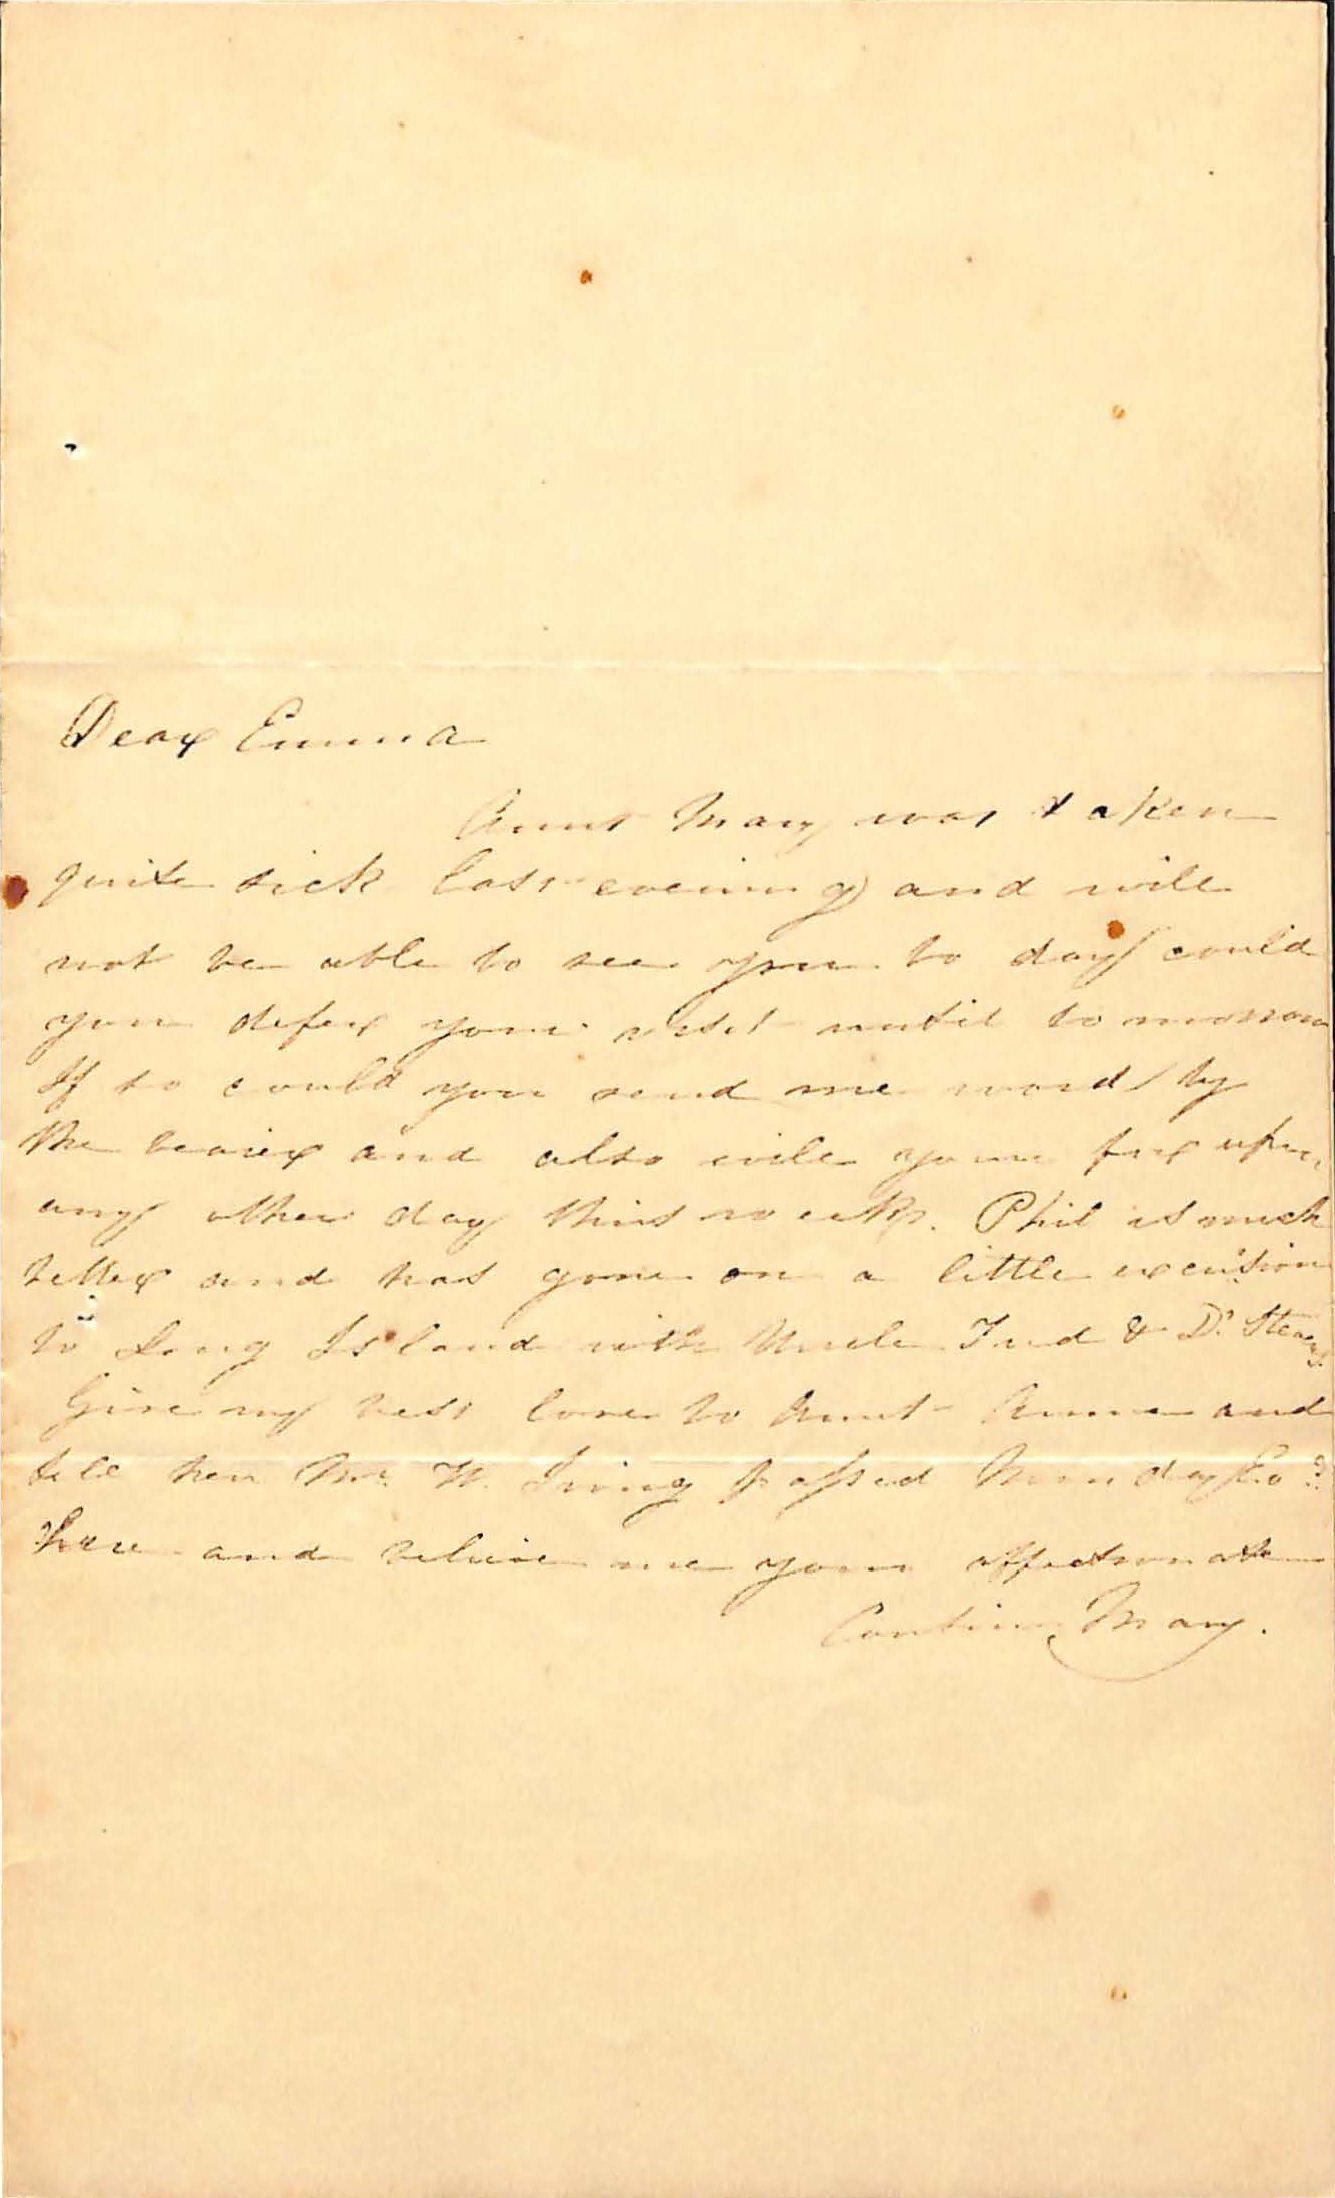 Dear Emma
Aunt Mary was taken
quite sick last evening and will
not be able to see you to day could
you defer your visit until to morrow
If so could you send me word by
the bearer and also will you fix upon
any other day this week. Phil is much
better and has gone on a little excursion
to Long Island with Uncle & Dr. Stearns.
Give my best love to Aunt Anna and
tell her Mr. W. Irving passed Monday Eve
here and believe me your affectionate
Cousin Mary.